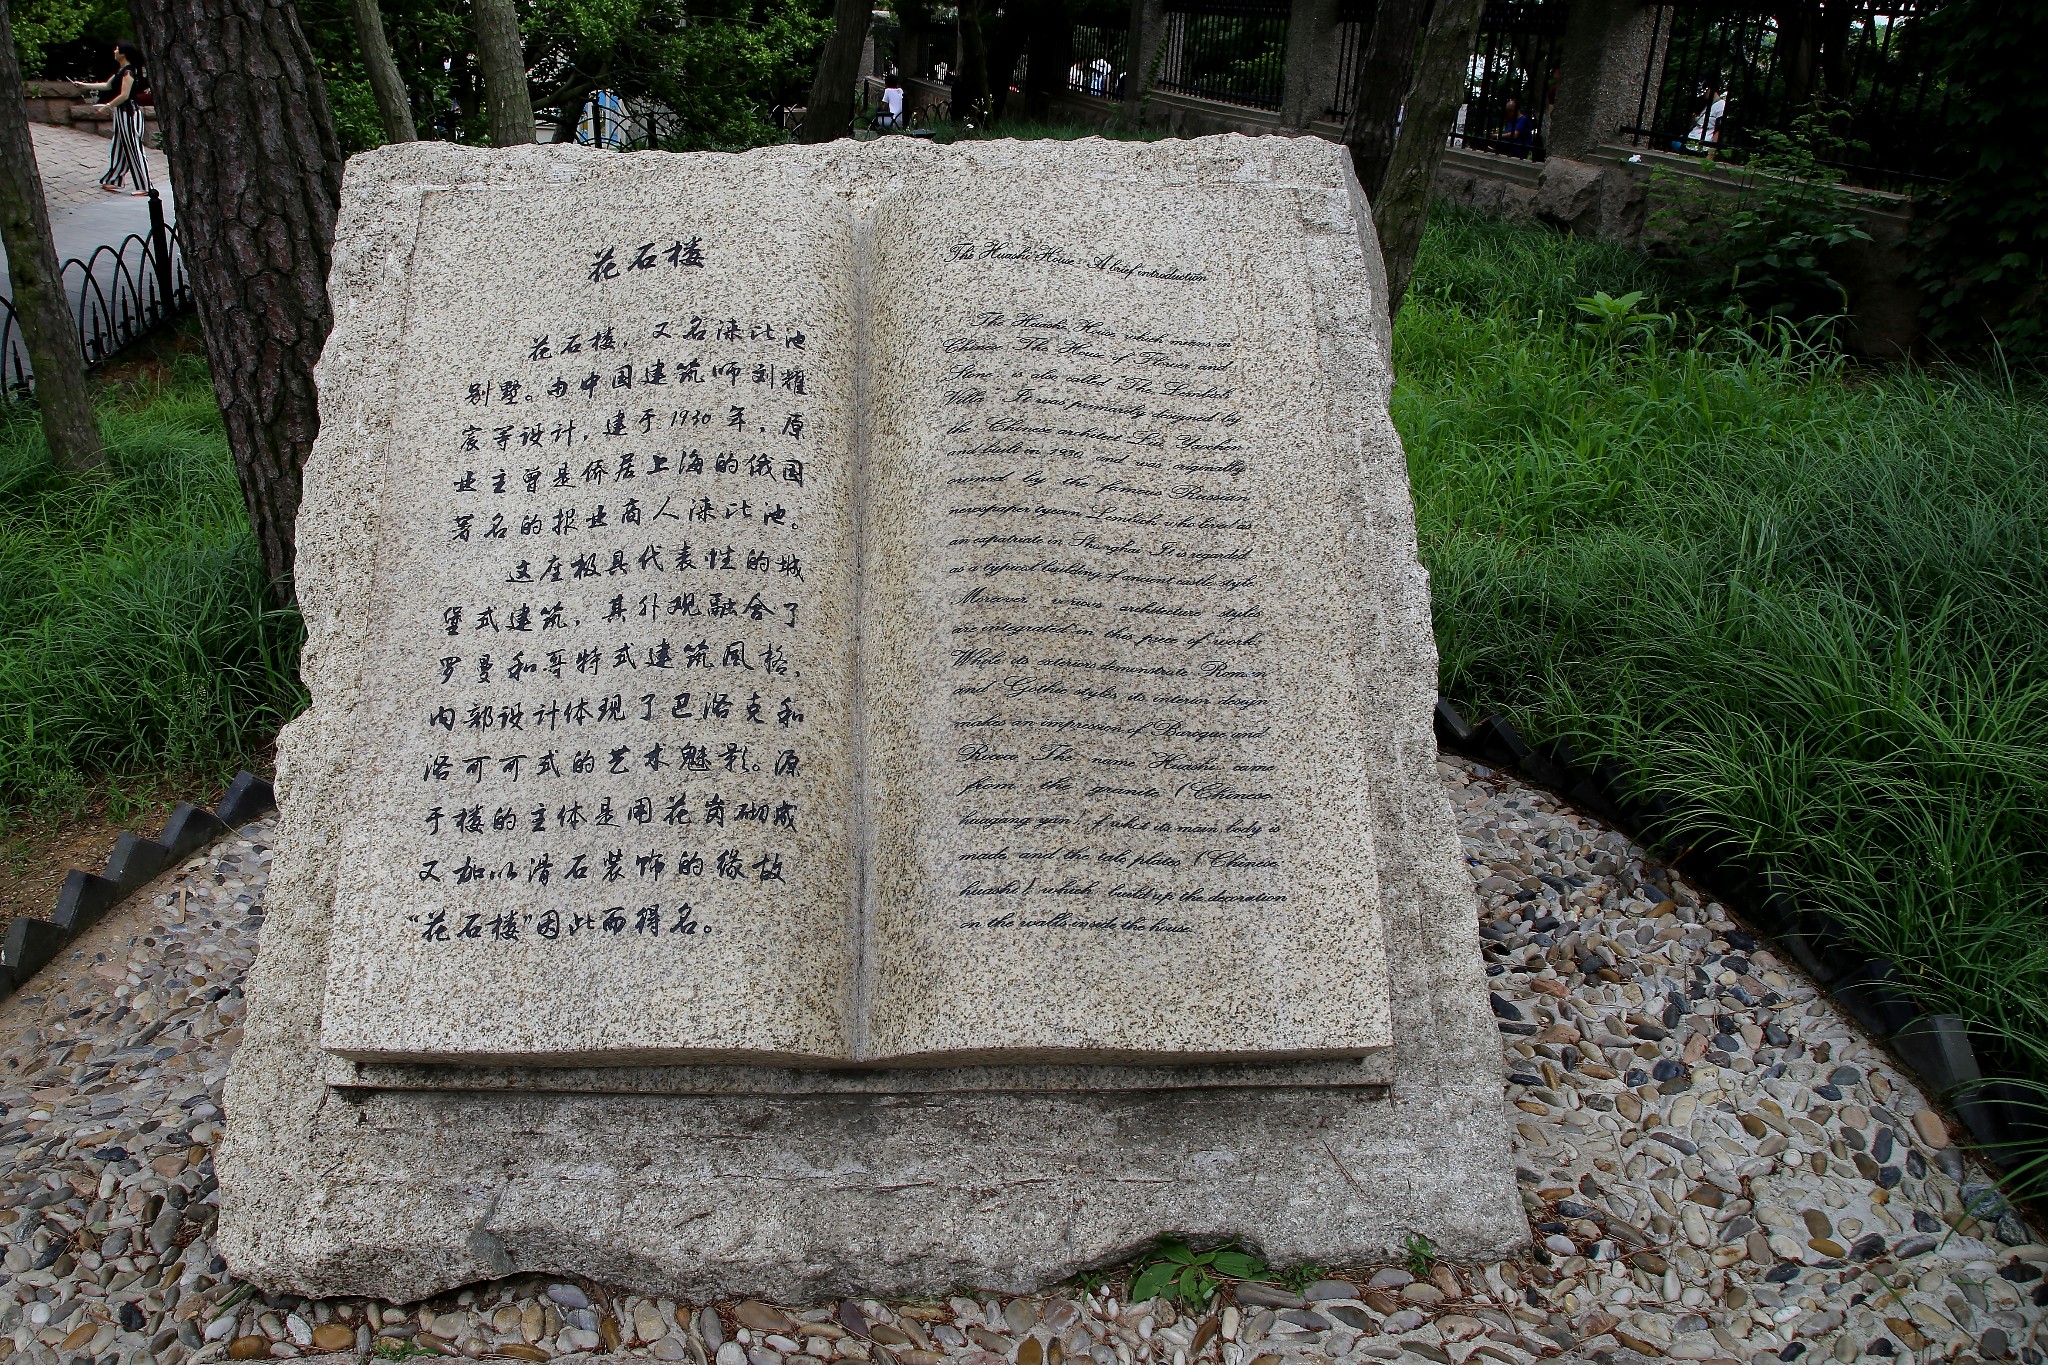 花石楼
花石楼，又名涞比池
别墅。由中国建筑师刘耀
宸等设计，建于1930年，原
业主曾是侨居上海的俄国
著名的报业商人涞比池。
这座极具代表性的城
堡式建筑，其外观融合了
罗曼和哥特式建筑风格，
内部设计体现了巴洛克和
洛可可式的艺术魅影。源
于楼的主体是用花岗砌成
又加以滑石装饰的缘故
“花石楼”因此而得名。
The Huashi House: A brief introduction
The Huashi House, which means in
Chinese "The House of Flower and
Stone", is also called "The Lembich
Villa". It was primarily designed by
the Chinese architect Liu Yaochen
and built in 1930, and was originally
owned by the famous Russian
newspaper tycoon Lembich who lived as
an expatriate in Shanghai. It is regarded
as a typical building of ancient castle style.
Moreover, various architecture styles
are integrated in this piece of work.
While its exteriors demonstrate Roman
and Gothic styles, its interior design
makes an impression of Baroque and
Rococo. The name "Huashi" came
from the granite (Chinese:
huagang yan) of which its main body is
made, and the talc plates (Chinese:
huashi) which build up the decoration
on the walls inside the house.